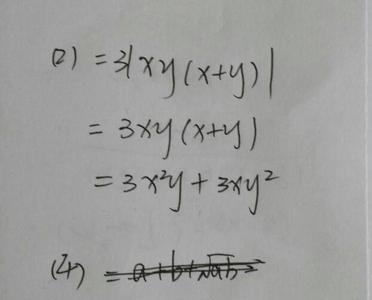 (2) = 3|xy(x+y)|
= 3xy(x+y)
= 3x²y + 3xy²
(4) = a+b+√ab